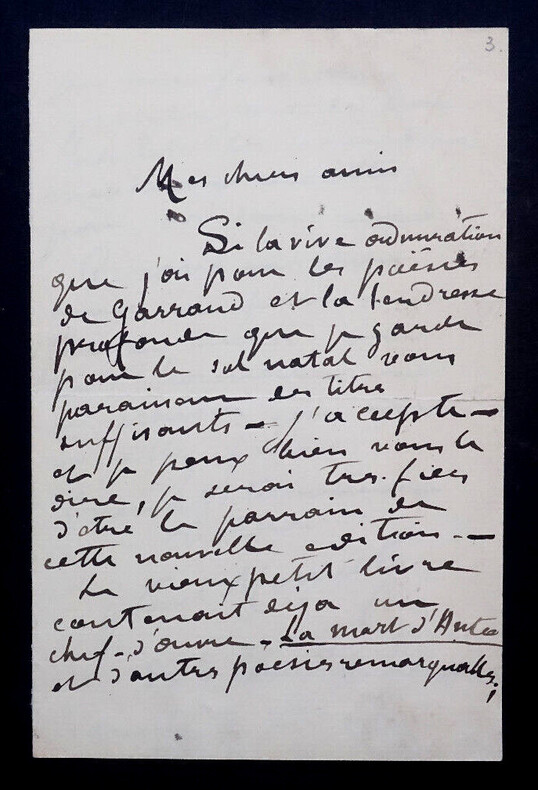 3.
Mes chers amis
Si la vive admiration
que j'ai pour les poésies
de Garraud et la tendresse
profonde que je garde
pour le sol natal vous
paraissent des titres
suffisants – j'accepte –
et je peux bien vous le
dire, je serai très fier
d'être le parrain de
cette nouvelle edition. –
Le vieux petit livre
contenait deja un
chef-d'œuvre, La mort d'
et d'autres poesies remarquables;